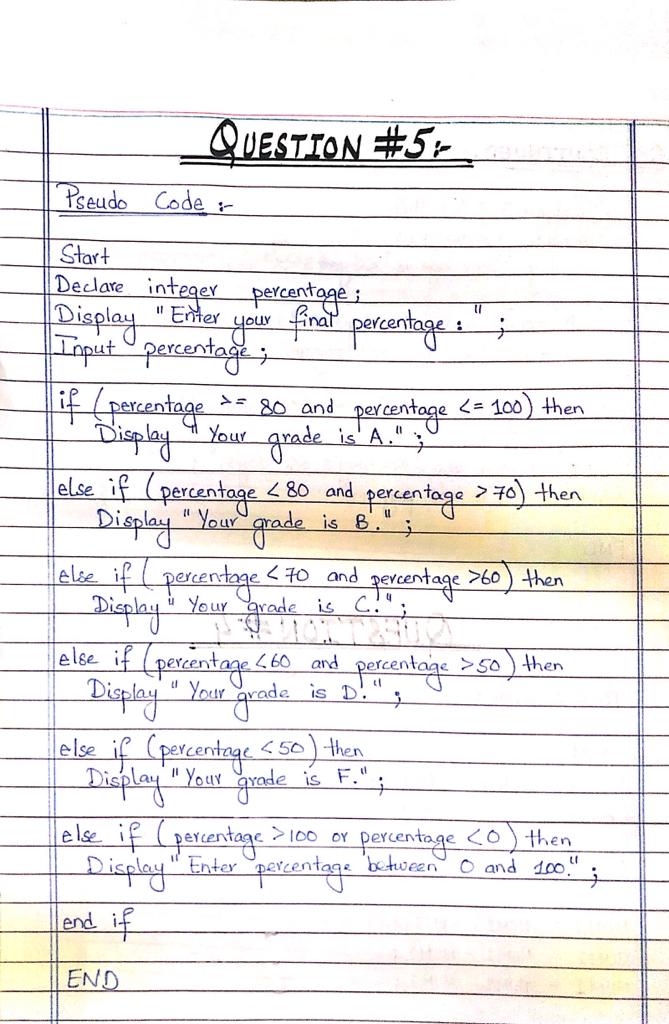 QUESTION #5:-
Pseudo Code :-
Start
Declare integer percentage;
Display "Enter your final percentage : " ;
Input percentage;
if (percentage >= 80 and percentage <= 100) then
Display " Your grade is A." ;
else if (percentage < 80 and percentage > 70) then
Display " Your grade is B." ;
else if ( percentage < 70 and percentage >60) then
Display " Your grade is C." ;
else if (percentage <60 and percentage >50) then
Display " Your grade is D." ;
else if (percentage < 50) then
Display " Your grade is F." ;
else if ( percentage >100 or percentage <0) then
Display " Enter percentage between 0 and 100." ;
end if
END